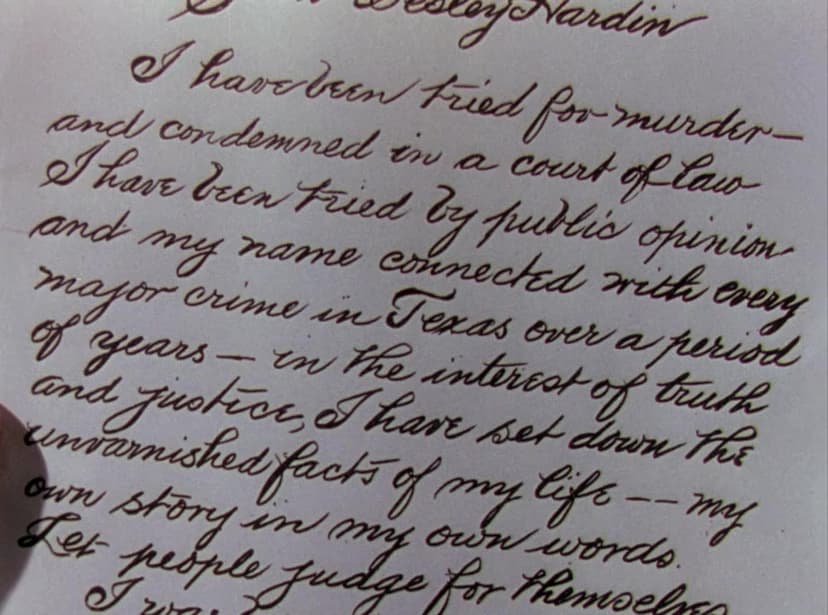 Wesley Hardin
I have been tried for murder—
and condemned in a court of law
I have been tried by public opinion
and my name connected with every
major crime in Texas over a period
of years — in the interest of truth
and justice, I have set down the
unvarnished facts of my life -- my
own story in my own words.
Let people judge for themselves
I was